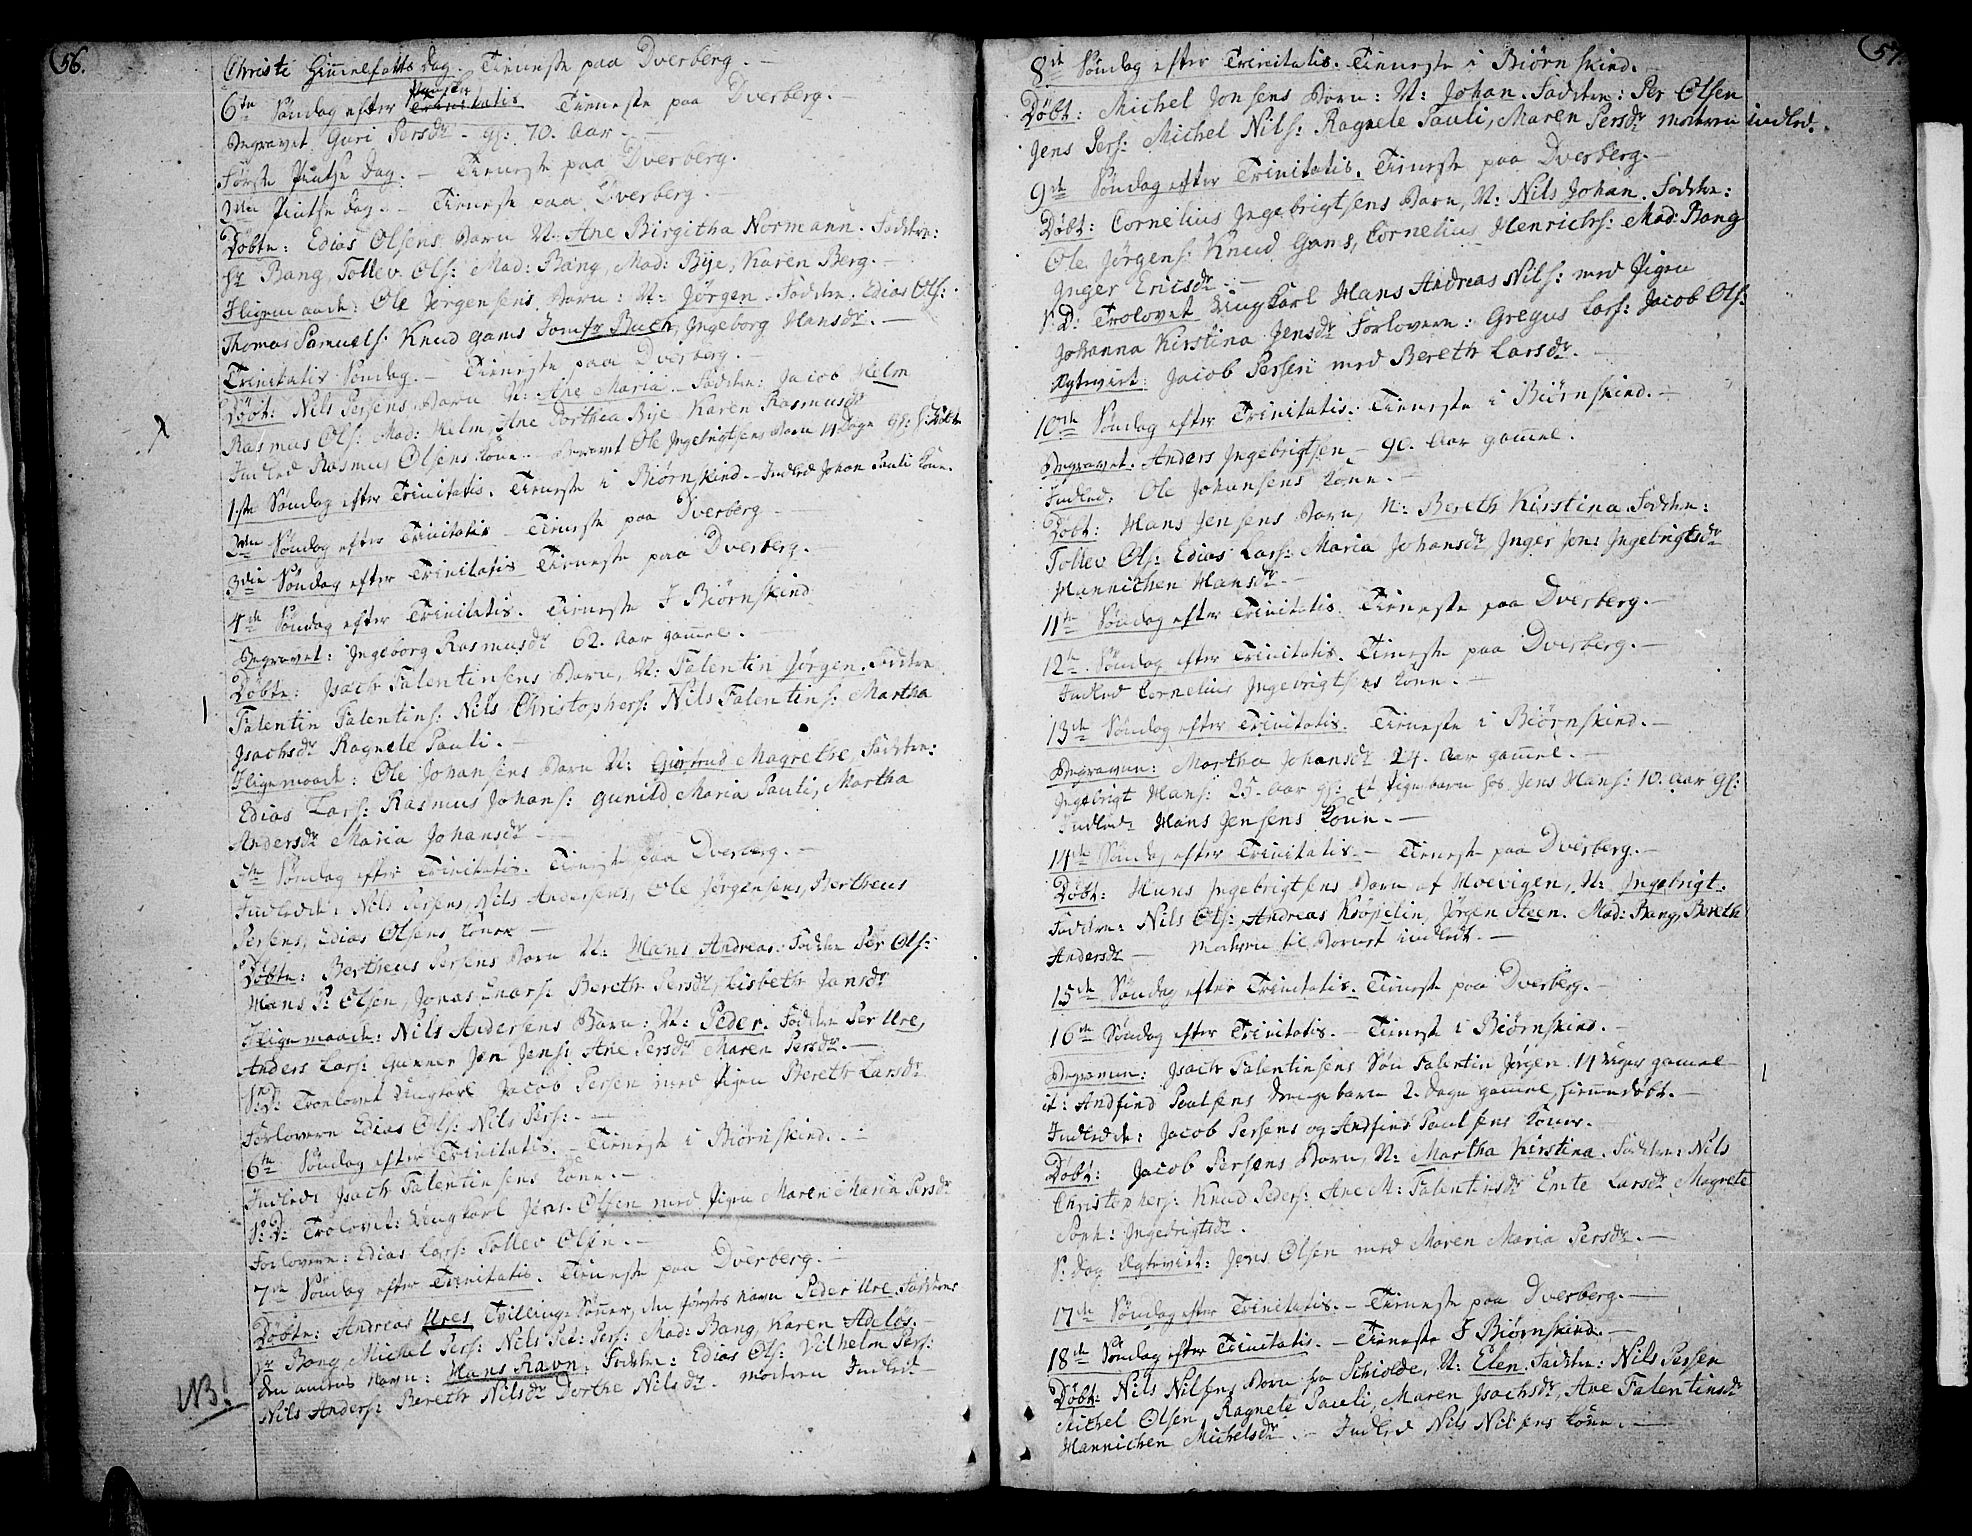 56.
Christi Himmelfarts dag. Tieneste paa Dverberg. -
6te Søndag efter Paaske Trinitatis Tieneste paa Dverberg.
Begravet Guri Persdr - gl: 70. Aar. -
Første Pintse Dag. - Tieneste paa Dverberg.
2den Pintse dag. - Tieneste paa Dverberg.
Døbte: Edias Olsens Barn N: Ane Birgitha Normann. Fadderne:
Hr Bang, Tollev Ols: Mad: Bang, Mad: Bye, Karen Berg. -
Iligemaade: Ole Jørgensens Barn: N: Jørgen. Fadderne. Edias Ols:
Thomas Samuels: Knud Gams Jomfr Buch, Ingeborg Hansdr. -
Trinitatis Søndag. - Tieneste paa Dverberg.
Døbt: Nils Persens Barn N: Ane Maria. Fadderne: Jacob Helm
Rasmus Ols: Mad: Helm, Ane Dorthea Bye Karen Rasmusdr
Indled Rasmus Olsens Kone. - Begravet Ole Ingebrigtsens Barn 14 Dage gl:
1ste Søndag efter Trinitatis. Tieneste i Biørnskind. - Indled Johan Pauli Kone.
2den Søndag efter Trinitatis Tieneste paa Dverberg
3die Søndag efter Trinitatis Tieneste paa Dverberg.
4de Søndag efter Trinitatis. Tieneste I Biørnskind
Begravet: Ingeborg Rasmusdr 62. Aar gammel. -
Døbte: Isach Falentinsens Barn, N: Falentin Jørgen. Fadderne
Falentin Falentins: Nils Christophers: Nils Falentins: Martha
Isachsdr Ragnele Pauli. -
Iligemaade: Ole Johansens Barn N: Giertrud Magrethe, Fadderne:
Edias Lars: Rasmus Johans: Gunild Maria Pauli, Martha
Andersdr Maria Johansdr -
5te Søndag efter Trinitatis. Tieneste paa Dverberg. -
Indledde: Nils Persens, Nils Andersens, Ole Jørgensens, Bertheus
Persens, Edias Olsens Koner -
Døbte: Bertheus Persens Barn N: Hans Andreas. Fadderne Per Ols:
Hans P: Olsen, Jonas Enars: Bereth Persdr, Lisbeth Jansdr
Iligemaade: Nils Andersens Barn: N: Peder. Fadderne Per Ure,
Anders Lars: Gunner Jon Jens: Ane Persdr Maren Persdr. -
S: D: Troelovet Ungkarl Jacob Persen med Pigen Bereth Larsdr
Forlovern Edias Ols: Nils Pers: -
6te Søndag efter Trinitatis. - Tieneste i Biørnskind. -
Indled: Isach Falentinsens Kone. -
S: D: Trolovet: Ungkarl Jens Olsen med Pigen Maren Maria Persdr
Forlovern: Edias Lars: Tollev Olsen. -
7de Søndag efter Trinitatis. Tieneste paa Dverberg. -
Døbte: Andreas Ures Tvillinge Sønner, den førstes Navn Peder Ure. Fadderne
Hr Bang, Michel Pers: Nils Ped: Pers: Mad: Bang, Karen Adelos. -
den andens Navn: Hans Ravn. Fadderne: Edias Ols: Vilhelm Pers:
NB! Nils Anders: Bereth Nilsdr Dorthe Nilsdr. Modren Indled
57.
8de Søndag efter Trinitatis. Tieneste i Biørnskind. -
Døbt: Michel Jonsens Barn: N: Johan. Fadderne: Per Olsen
Jens Pers: Michel Nils: Ragnele Pauli, Maren Persdr Modren indled.
9de Søndag efter Trinitatis. Tieneste paa Dverberg. -
Døbt: Cornelius Ingebrigtsens Barn, N: Nils Johan. Fadderne:
Ole Jørgens: Knud Gams, Cornelius Henrichs: Mad: Bang
Inger Ericsdr. -
S: D: Trolovet Ungkarl Hans Andreas Nils: med Pigen
Johanna Kirstina Jensdr Forlovern: Gregus Lars: Jacob Ols:
Ægteviet: Jacob Persen med Bereth Larsdr. -
10de Søndag efter Trinitatis. Tieneste i Biørnskind. -
Begravet. Anders Ingebrigtsen - 90. Aar gammel.
Indled: Ole Johansens Kone. -
Døbt: Hans Jensens Barn, N: Bereth Kirstina. Fadderne:
Tollev Ols: Edias Lars: Maria Johansdr Inger Jon: Ingebrigtsdr
Hannichen Hansdr. -
11te Søndag efter Trinitatis. Tieneste paa Dverberg. -
12te Søndag efter Trinitatis. Tieneste paa Dverberg. -
Indled Cornelius Ingebrigtsens Kone. -
13de Søndag efter Trinitatis. Tieneste i Biørnskind. -
Begraven: Martha Johansdr 24. Aar gammel. -
Ingebrigt Hans: 25. Aar gl: et Pigebarn hos Jens Hans: 10. Aar gl:
Indled: Hans Jensens Kone. -
14de Søndag efter Trinitatis - Tieneste paa Dverberg. -
Døbt: Hans Ingebrigtsens Barn af Hoevigen, N: Ingebrigt.
Fadderne: Nils Ols: Andreas Kröpelin, Jørgen Steen. Mad: Bang, Bereth
Andersdr - Modren til Barnet indledt. -
15de Søndag efter Trinitatis. Tieneste paa Dverberg. -
16de Søndag efter Trinitatis. - Tieneste i Biørnskind. -
Begraven: Isach Falentinsens Søn Falentin Jørgen. 14 Uger gammel
it: Andfind Paulsens drengebarn 2. Dage gammel, hiemmedøbt. -
Indledde: Jacob Persens og Andfind Paulsens Koner.
Døbt: Jacob Persens Barn, N: Martha Kirstina. Fadderne: Nils
Christophers: Knud Peders: Ane M: Falentinsdr Emte Larsdr Magrete
Ingebrigtsdr.
S: dag Ægteviet: Jens Olsen med Maren Maria Persdr. -
17de Søndag efter Trinitatis. - Tieneste paa Dverberg. -
18de Søndag efter Trinitatis. - Tieneste I Biørnskind. -
Døbt: Nils Nilsens Barn fra Schiolde, N: Elen. Fadderne: Nils Persen
Michel Olsen, Ragnele Pauli, Maren Isachsdr, Ane Falentinsdr
Hannichen Michelsdr. - Indled Nils Nilsens Kone. -